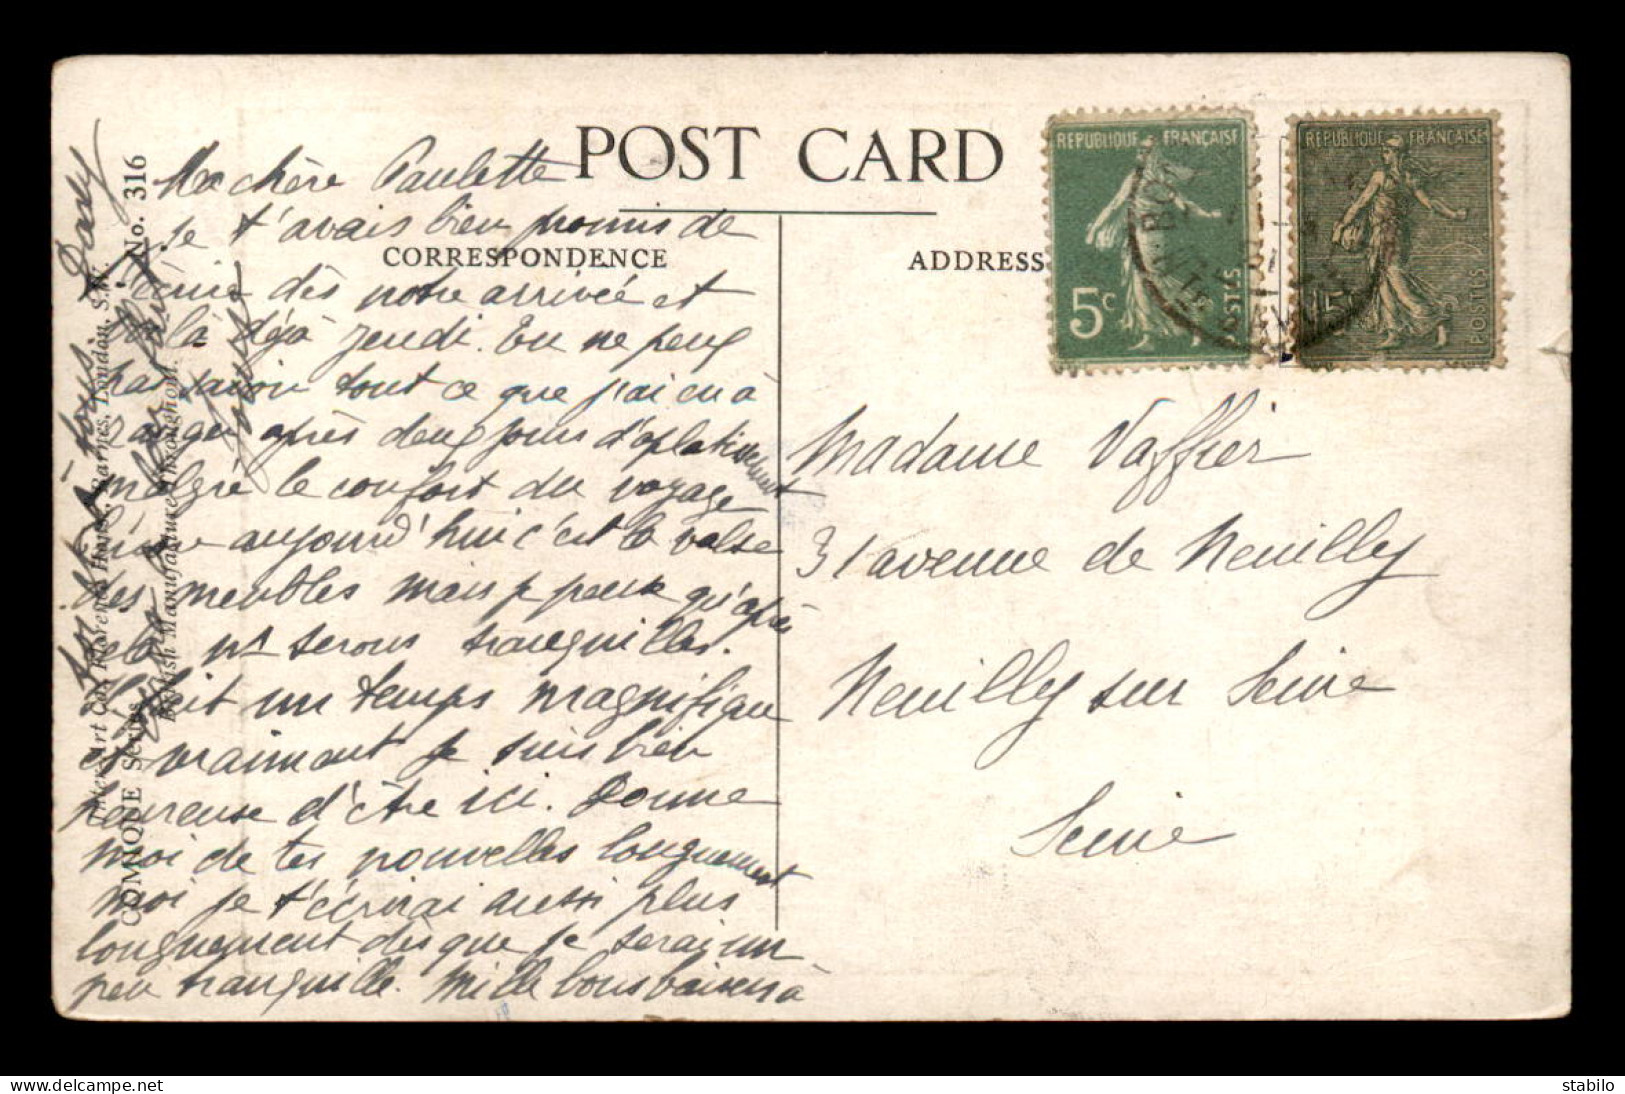 POST CARD
CORRESPONDENCE
ADDRESS
REPUBLIQUE FRANÇAISE
5c
POSTES
REPUBLIQUE FRANÇAISE
15c
POSTES
Ma chère Paulette
je t'avais bien promis de
t'écrire dès notre arrivée et
voilà déjà jeudi. Tu ne peux
pas savoir tout ce que j'ai eu à
ranger après deux jours d'aplatissement
malgré le confort du voyage
aujourd'hui c'est la valse
des meubles mais je pense qu'après
cela ns serons tranquilles.
Il fait un temps magnifique
et vraiment je suis bien
heureuse d'être ici. Donne
moi de tes nouvelles longuement
moi je t'écrirai aussi plus
longuement dès que je serai un
peu tranquille. Mille bons baisers à
tous
Dady
Madame Vaffier
31 avenue de Neuilly
Neuilly sur Seine
Seine
Inter-Art Co., Florence House, Barnes, London, S.W.
COMIQUE SERIES No. 316
British Manufacture Throughout.
stabilo